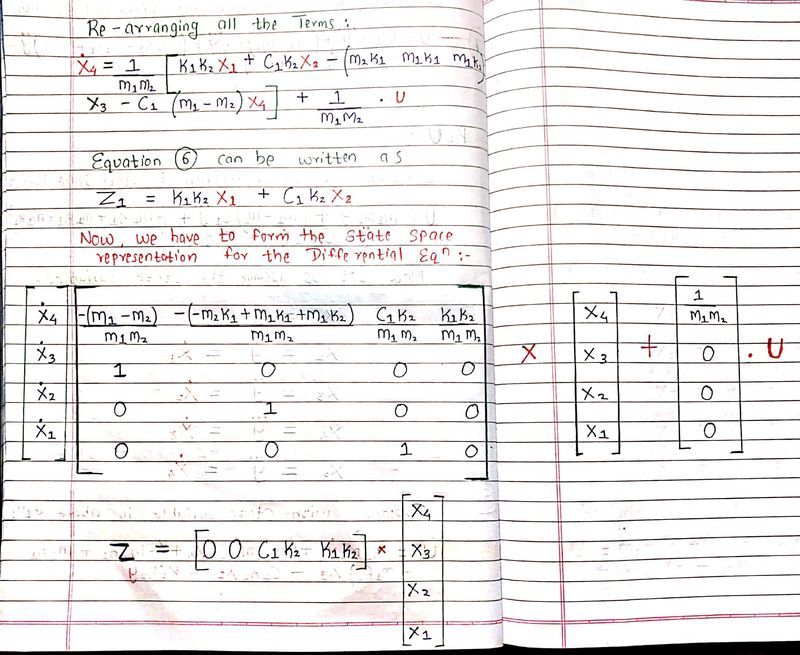 Re-arranging all the Terms :
Ẋ4 = 1/m1m2 [ K1K2 X1 + C1K2 X2 - (m2K1 m1K1 m1K2)
X3 - C1 (m1 - m2) X4 ] + 1/m1m2 . U
Equation ⑥ can be written as
Z1 = K1K2 X1 + C1K2 X2
Now, we have to form the State Space
representation for the Differential Eqn :-
[Ẋ4 [-(m1-m2)/m1m2 -(-m2K1+m1K1+m1K2)/m1m2 C1K2/m1m2 K1K2/m1m2 [X4 [1/m1m2
Ẋ3 1 0 0 0 X X3 + 0 . U
Ẋ2 0 1 0 0 X2 0
Ẋ1] 0 0 1 0] X1] 0]
Z = [0 0 C1K2 K1K2] × [X4
X3
X2
X1]